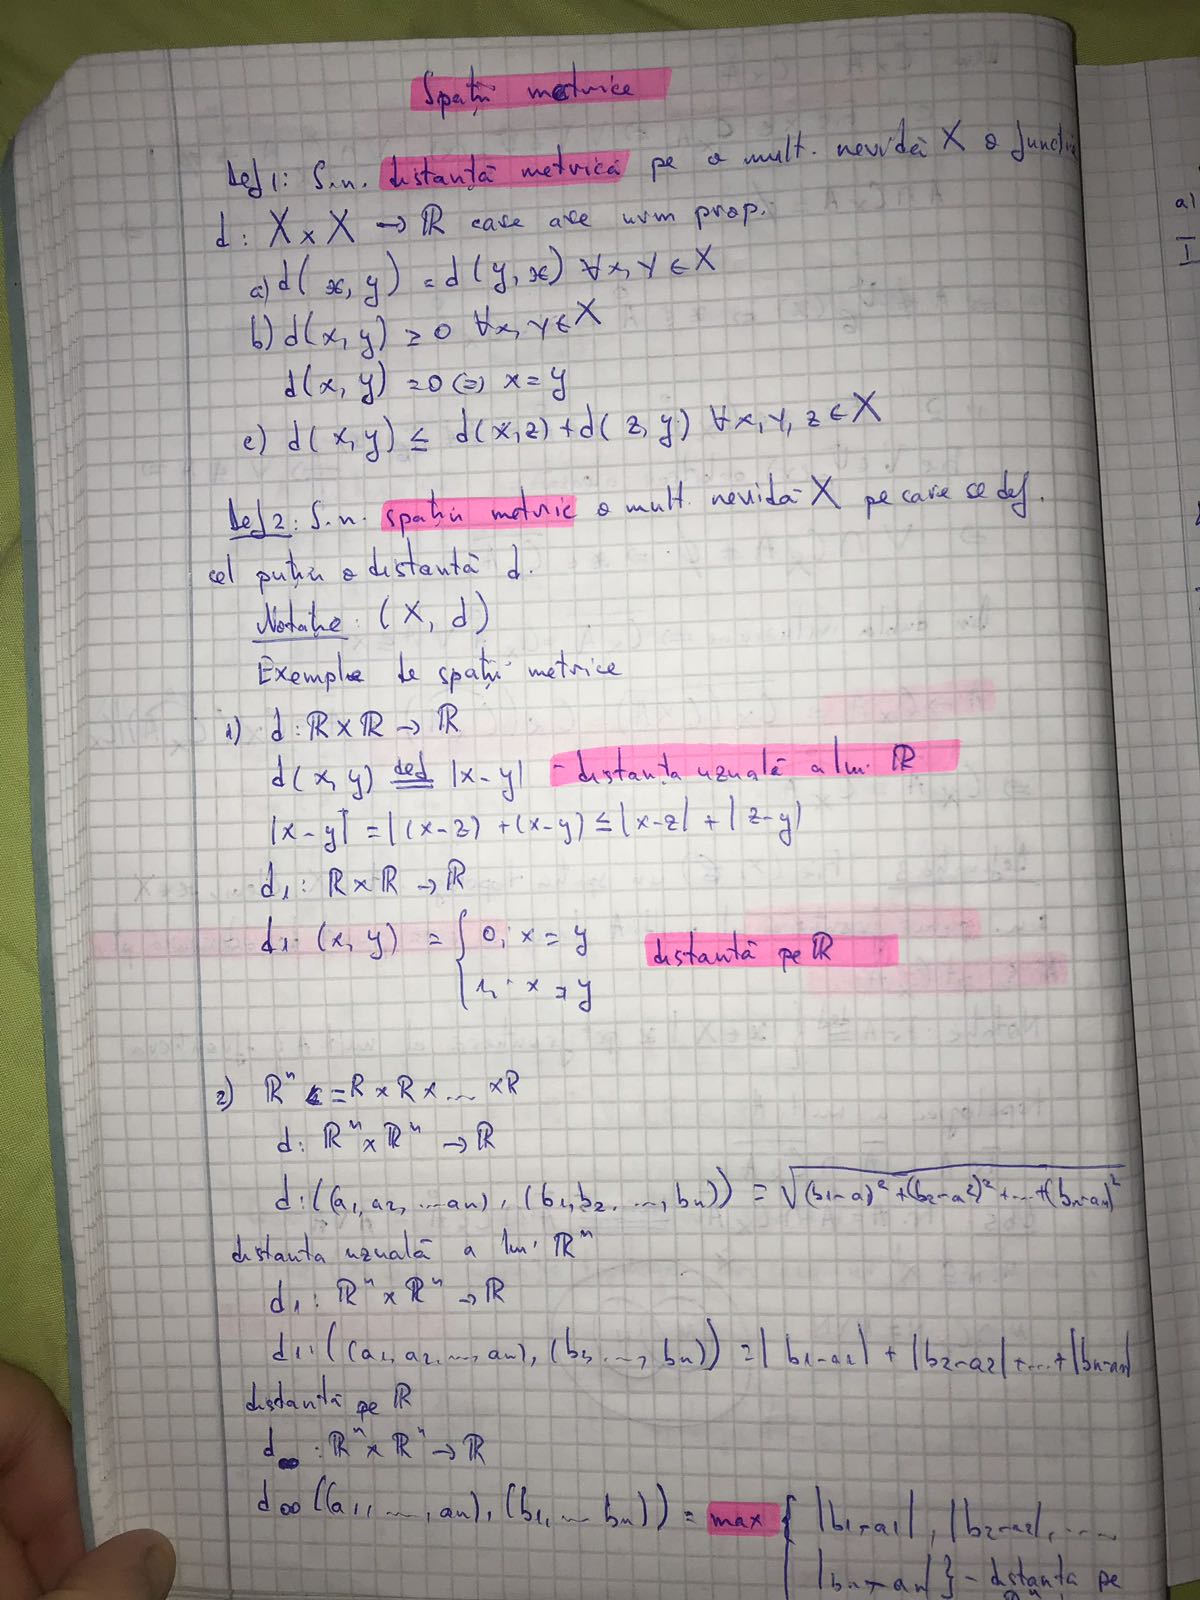 Spații metrice
Def 1: S.n. distanță metrică pe o mult. nevidă X o funcție
d: X × X → ℝ care are urm prop.
a) d(x, y) = d(y, x) ∀x, y ∈ X
b) d(x, y) ≥ 0 ∀x, y ∈ X
d(x, y) = 0 (=) x = y
c) d(x, y) ≤ d(x, z) + d(z, y) ∀x, y, z ∈ X
Def 2: S.n. spațiu metric o mult. nevidă X pe care se def.
cel puțin o distantă d.
Notație: (X, d)
Exemple de spații metrice
1) d: ℝ × ℝ → ℝ
d(x, y) def |x - y| - distanța uzuală a lui ℝ
|x - y| = |(x - z) + (x - y) ≤ |x - z| + |z - y|
d₁: ℝ × ℝ → ℝ
d₁. (x, y) = { 0, x = y distantă pe ℝ
1, x ≠ y
2) ℝⁿ = R × R × ... × R
d: ℝⁿ × ℝⁿ → ℝ
d: ((a₁, a₂, ... aₙ), (b₁, b₂, ..., bₙ)) = √(b₁ - a)² + (b₂ - a²)² + ... + (bₙ - aₙ)²
distanta uzuală a lui ℝⁿ
d₁: ℝⁿ × ℝⁿ → ℝ
d₁: ((a₁, a₂, ..., aₙ), (b₁, ..., bₙ)) = |b₁ - a₁| + |b₂ - a₂| + ... + |bₙ - aₙ|
distantă pe ℝ
d∞: ℝⁿ × ℝⁿ → ℝ
d∞ ((a₁, ..., aₙ), (b₁, ... bₙ)) = max { |b₁ - a₁|, |b₂ - a₂|, ...
|bₙ - aₙ| } - distanta pe
a)
I